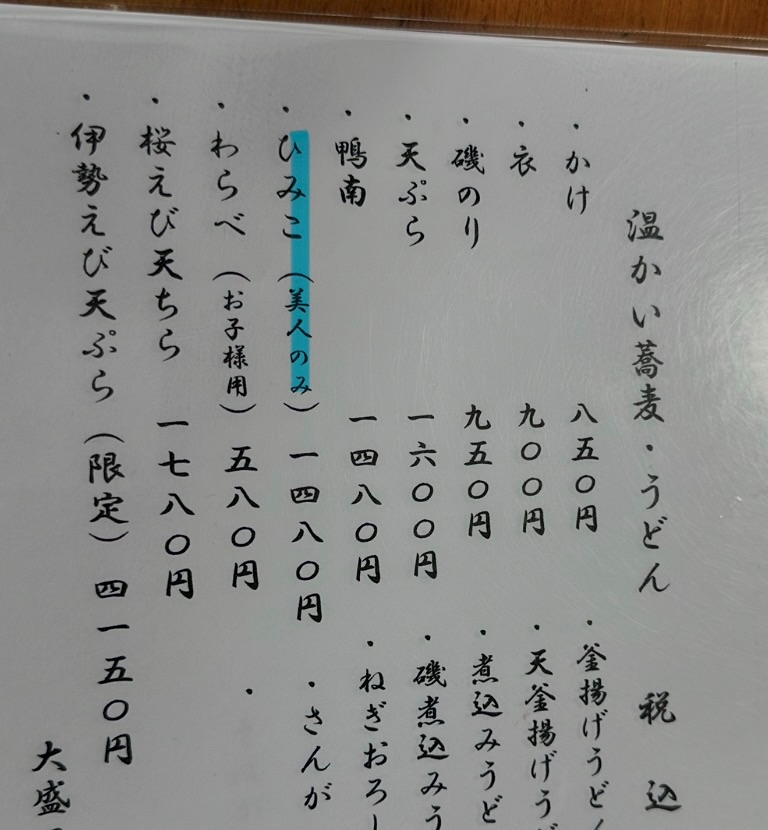 温かい蕎麦・うどん 税込
・かけ 八五〇円
・衣 九〇〇円
・磯のり 九五〇円
・天ぷら 一六〇〇円
・鴨南 一四八〇円
・ひみこ(美人のみ) 一四八〇円
・わらべ(お子様用) 五八〇円
・桜えび天ちら 一七八〇円
・伊勢えび天ぷら(限定) 四一五〇円
・釜揚げうどん
・天釜揚げう
・煮込みうど
・磯煮込みう
・ねぎおろし
・さんが
・
大盛